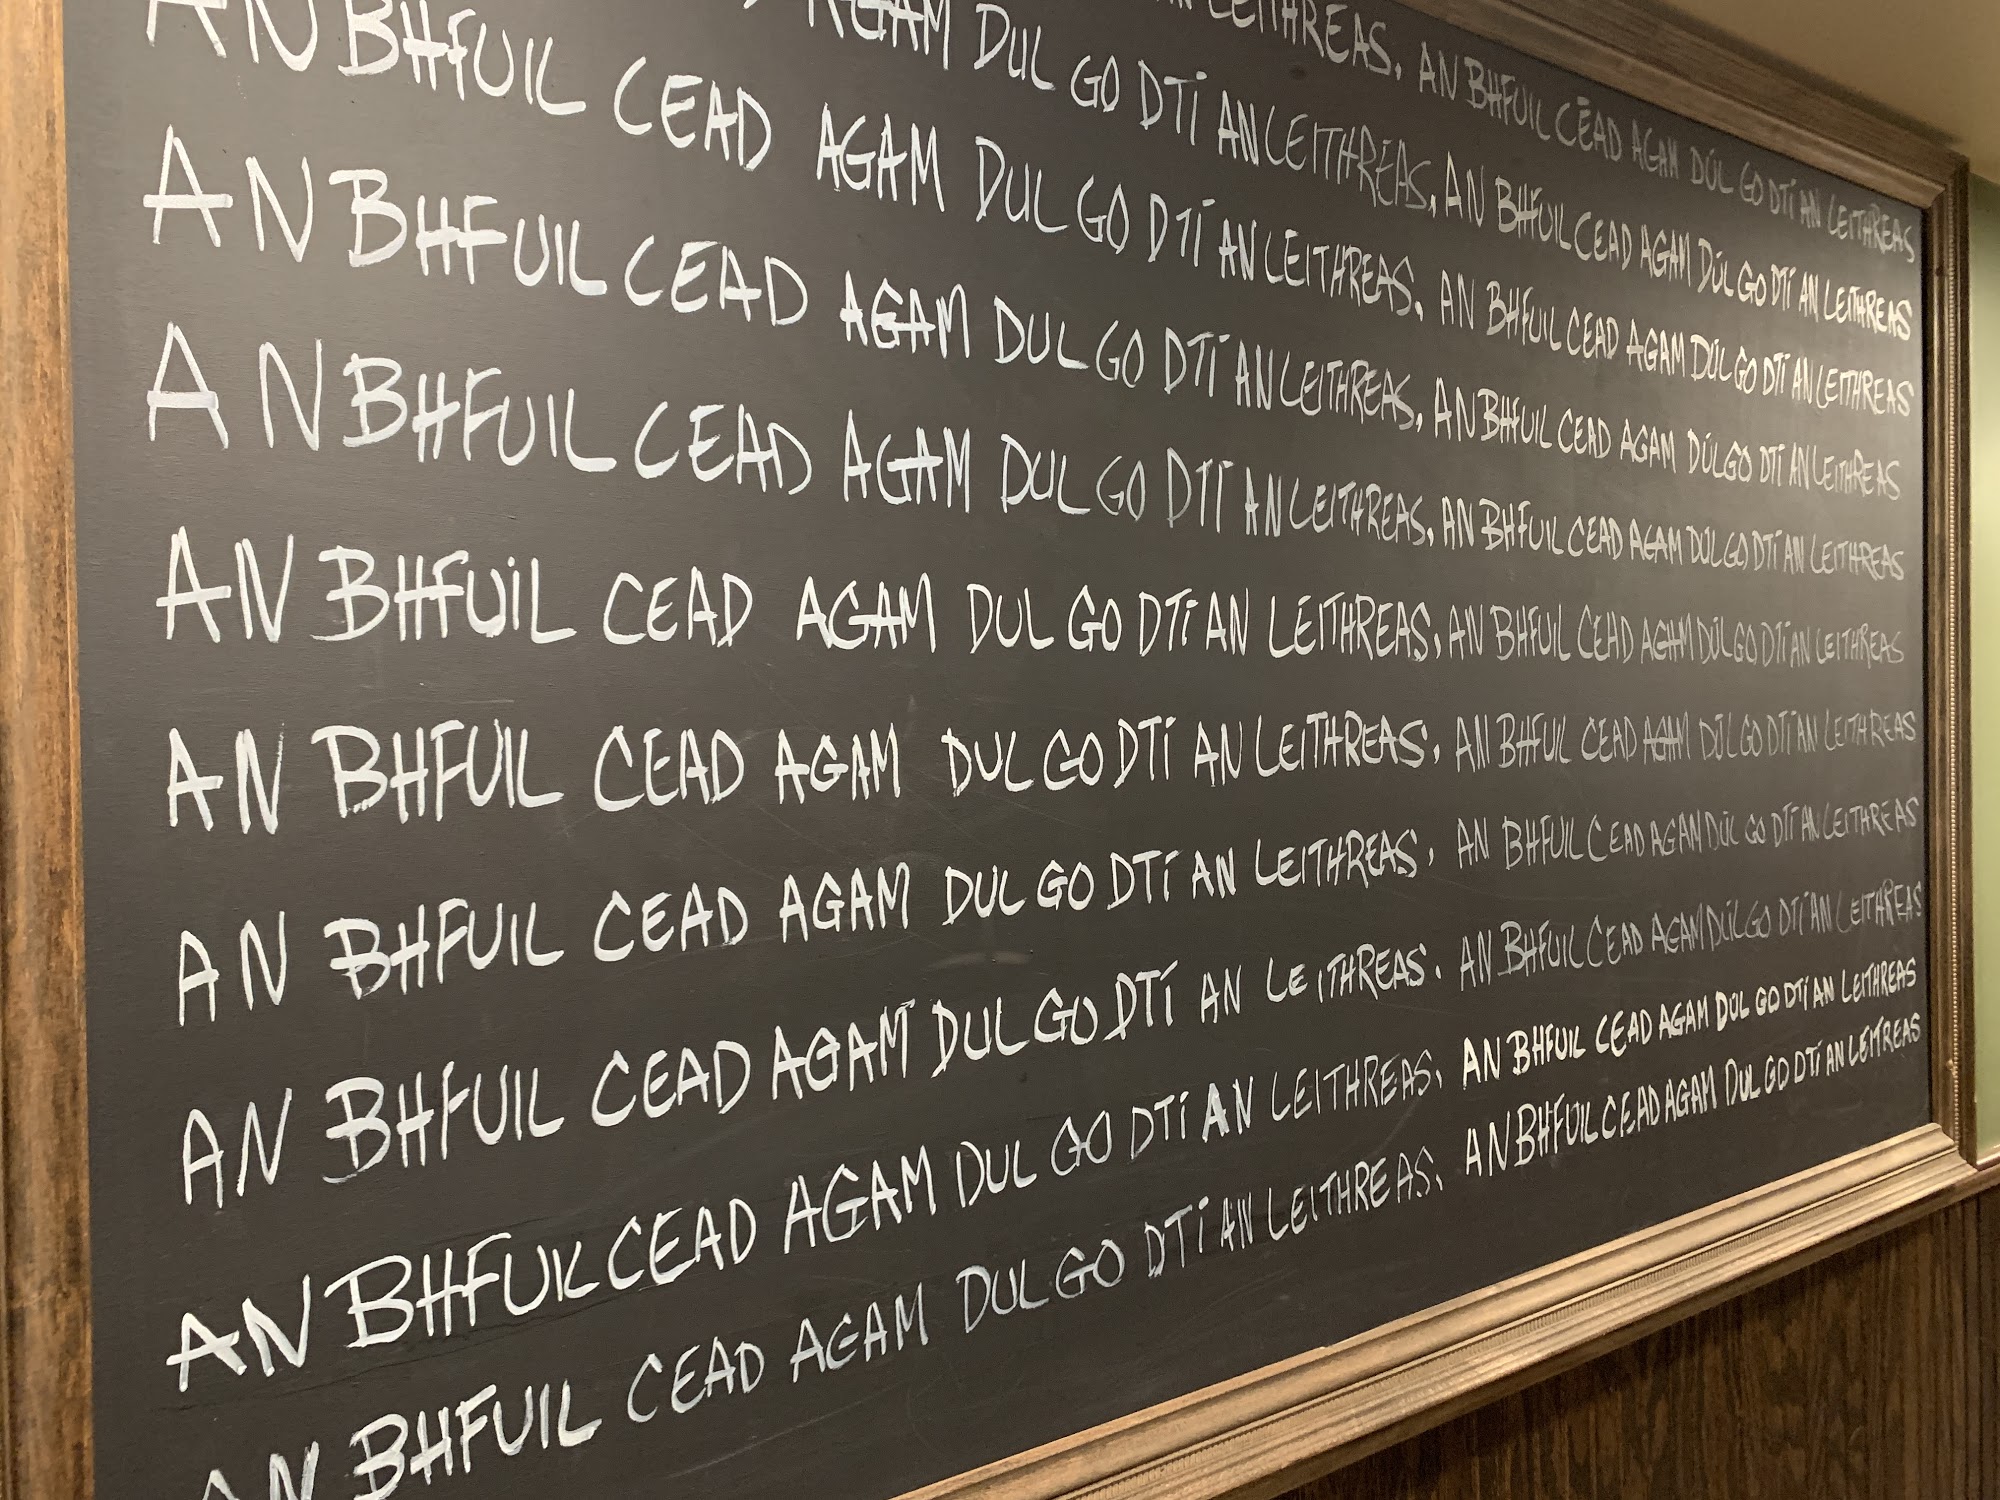 LEITHREAS. AN BHFUIL CÉAD AGAM DÚL GO DTÍ AN LEITHREAS
AGAM DUL GO DTÍ AN LEITHREAS. AN BHFUIL CEAD AGAM DÚL GO DTÍ AN LEITHREAS
AN BHFUIL CEAD AGAM DUL GO DTÍ AN LEITHREAS. AN BHFUIL CEAD AGAM DÚL GO DTÍ AN LEITHREAS
AN BHFUIL CEAD AGAM DUL GO DTÍ AN LEITHREAS. AN BHFUIL CEAD AGAM DÚL GO DTÍ AN LEITHREAS
AN BHFUIL CEAD AGAM DUL GO DTÍ AN LEITHREAS. AN BHFUIL CEAD AGAM DÚL GO DTÍ AN LEITHREAS
AN BHFUIL CEAD AGAM DUL GO DTÍ AN LEITHREAS. AN BHFUIL CEAD AGAM DÚL GO DTÍ AN LEITHREAS
AN BHFUIL CEAD AGAM DUL GO DTÍ AN LEITHREAS. AN BHFUIL CEAD AGAM DÚL GO DTÍ AN LEITHREAS
AN BHFUIL CEAD AGAM DUL GO DTÍ AN LEITHREAS. AN BHFUIL CEAD AGAM DÚL GO DTÍ AN LEITHREAS
AN BHFUIL CEAD AGAM DUL GO DTÍ AN LEITHREAS. AN BHFUIL CEAD AGAM DÚL GO DTÍ AN LEITHREAS
AN BHFUIL CEAD AGAM DUL GO DTÍ AN LEITHREAS. AN BHFUIL CEAD AGAM DUL GO DTÍ AN LEITHREAS
AN BHFUIL CEAD AGAM DUL GO DTÍ AN LEITHREAS. AN BHFUIL CEAD AGAM DUL GO DTÍ AN LEITREAS